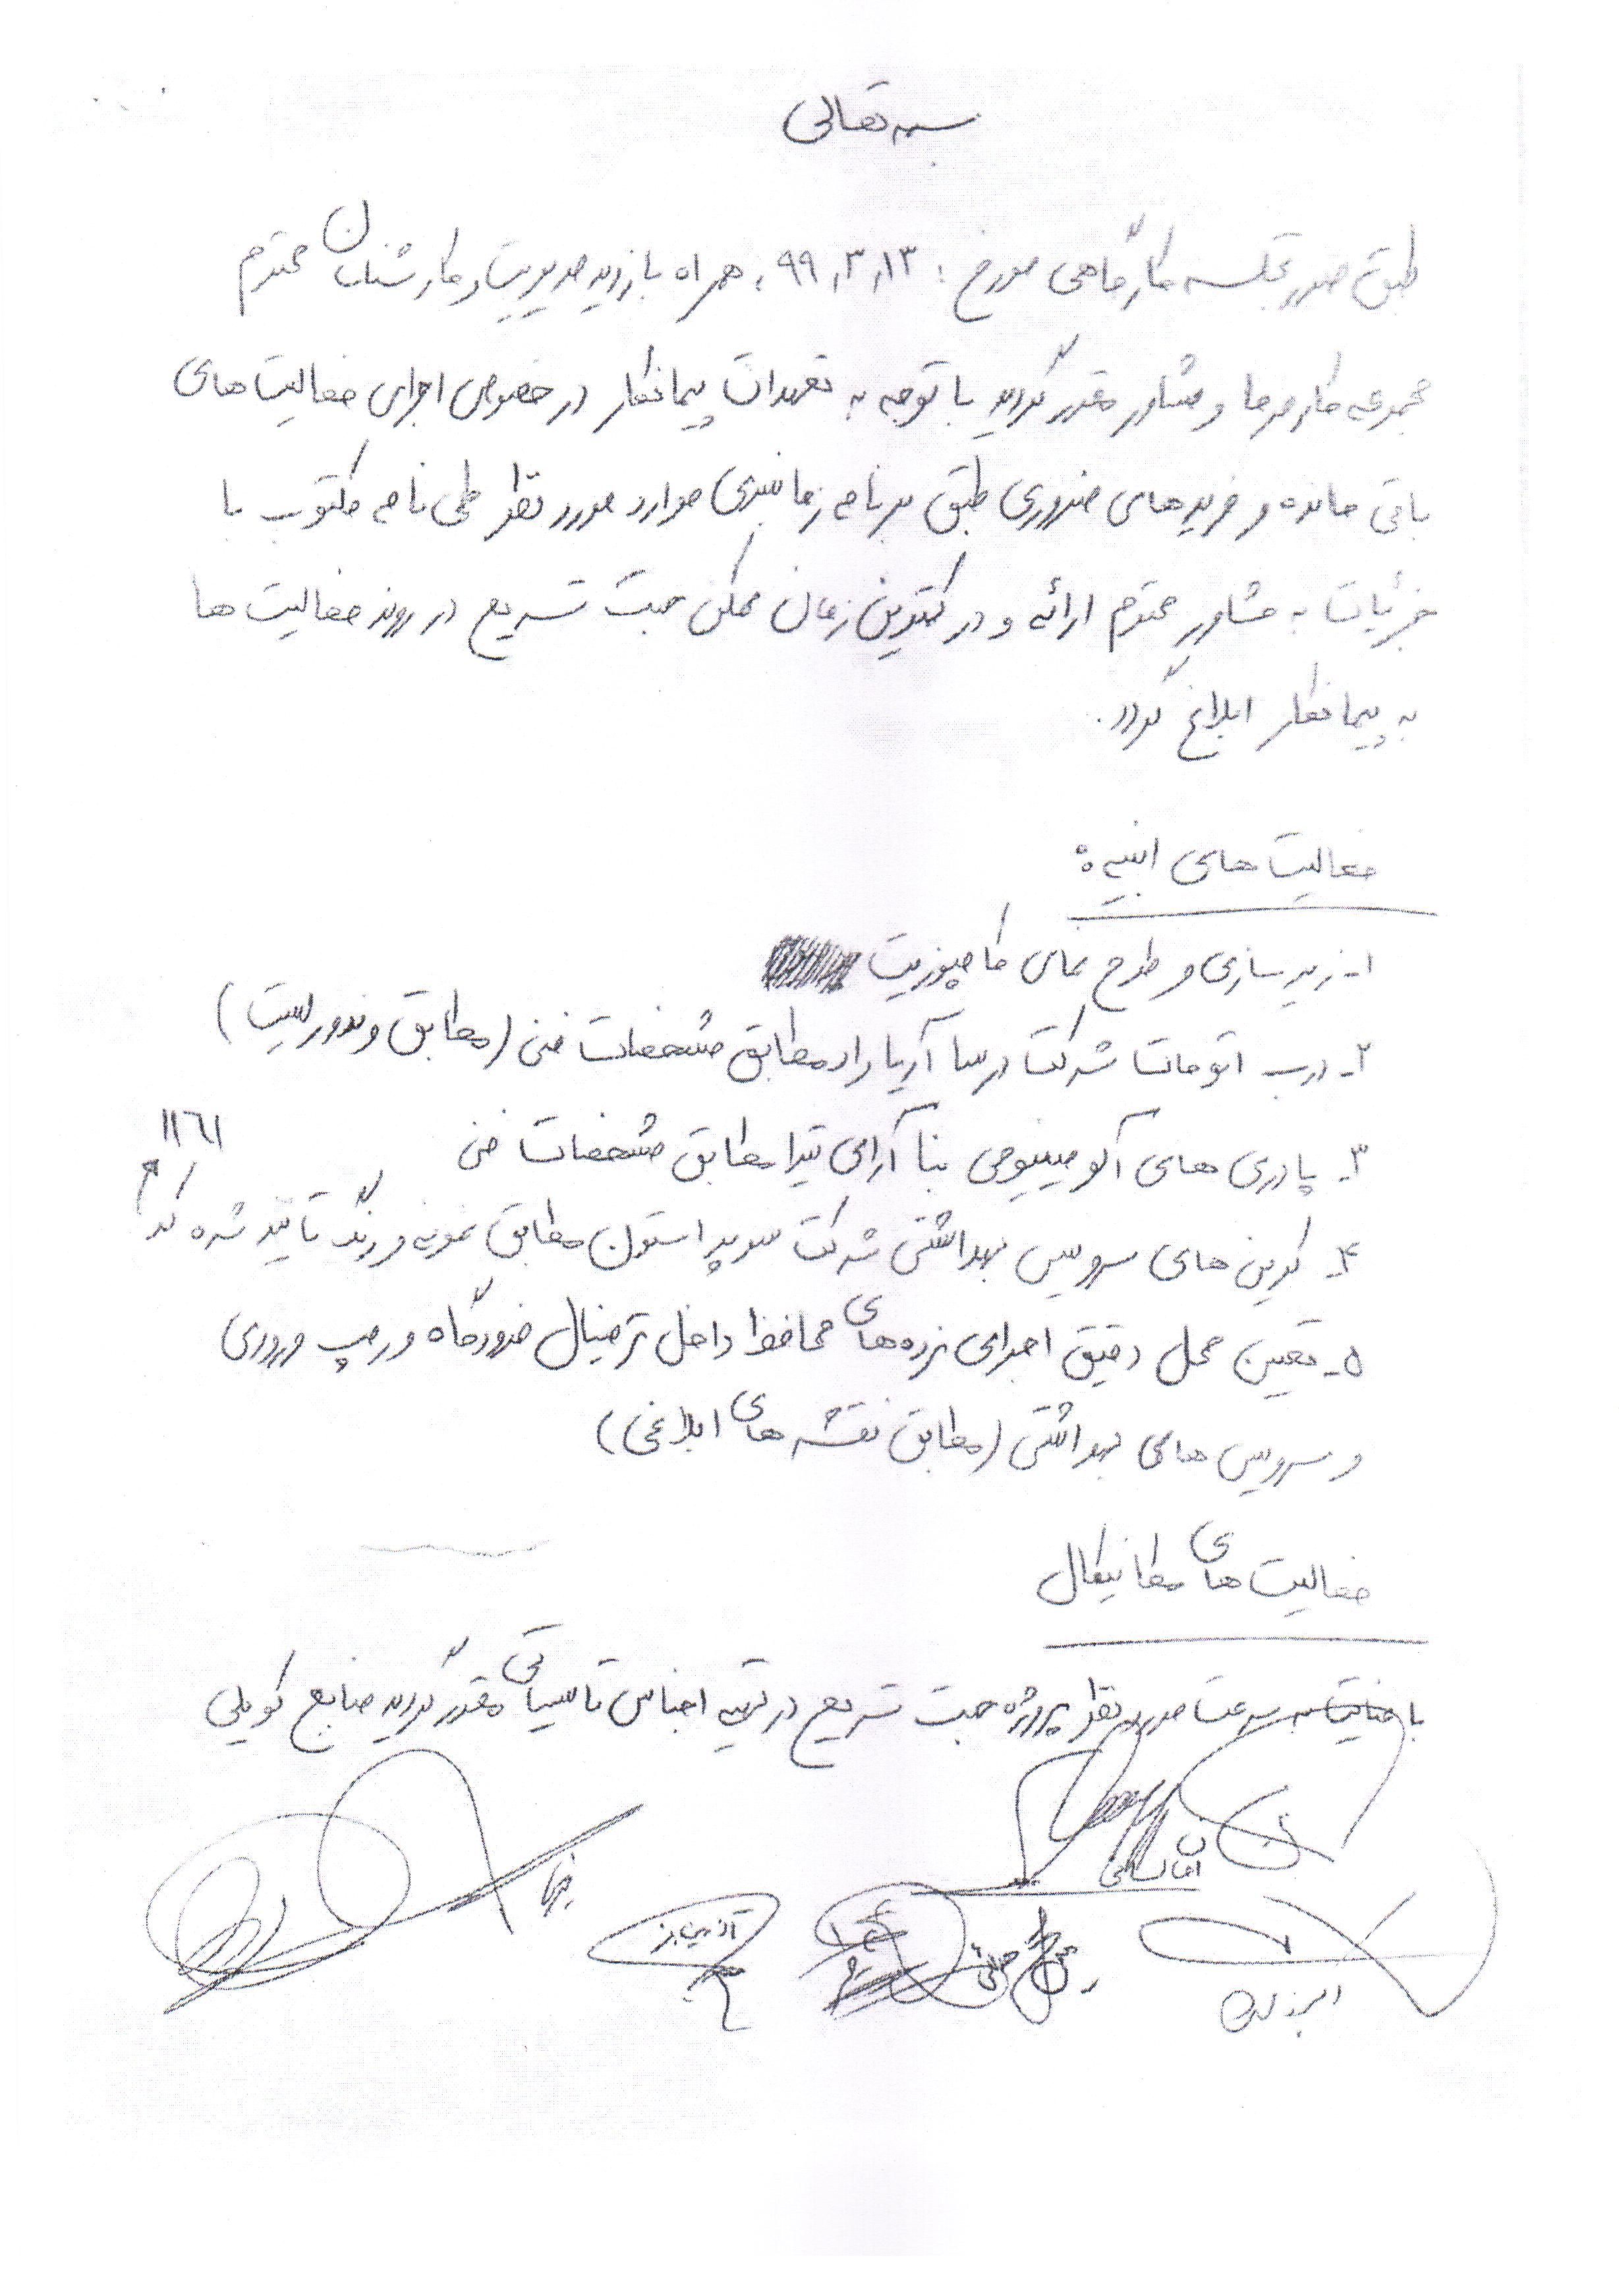 بسمه تعالی
طبق صورتجلسه کارگاهی مورخ : ۹۹,۳,۱۳ ، همراه بازدید مدیریت و کارشناسان محترم
مجموعه کارفرما و مشاور مقرر گردید با توجه به تعهدات پیمانکار در خصوص اجرای فعالیت های
باقی مانده و خریدهای ضروری طبق برنامه زمانبندی موارد مورد نظر طی نامه مکتوب با
جزئیات به مشاور محترم ارائه و در کمترین زمان ممکن جهت تسریع در روند فعالیت ها
به پیمانکار ابلاغ گردد.
فعالیت های ابنیه :
۱- زیرسازی و طرح نمای کامپوزیت
۲- درب اتومات شرکت درسا آریا راد مطابق مشخصات فنی (مطابق وندور لیست)
۳- پادری های آلومینیومی بنا آرای تیرا مطابق مشخصات فنی
۴- کرین های سرویس بهداشتی شرکت سوپر استون مطابق نمونه و رنگ تائید شده کد ۱۱۶۱
۵- تعیین محل دقیق اجرای نرده های محافظ داخل ترمینال فرودگاه و رمپ ورودی
و سرویس های بهداشتی (مطابق نقشه های ابلاغی)
فعالیت های مکانیکال
با عنایت به سرعت مورد نظر پروژه جهت تسریع در تهیه اجناس تاسیساتی مقرر گردید صنایع کویلی